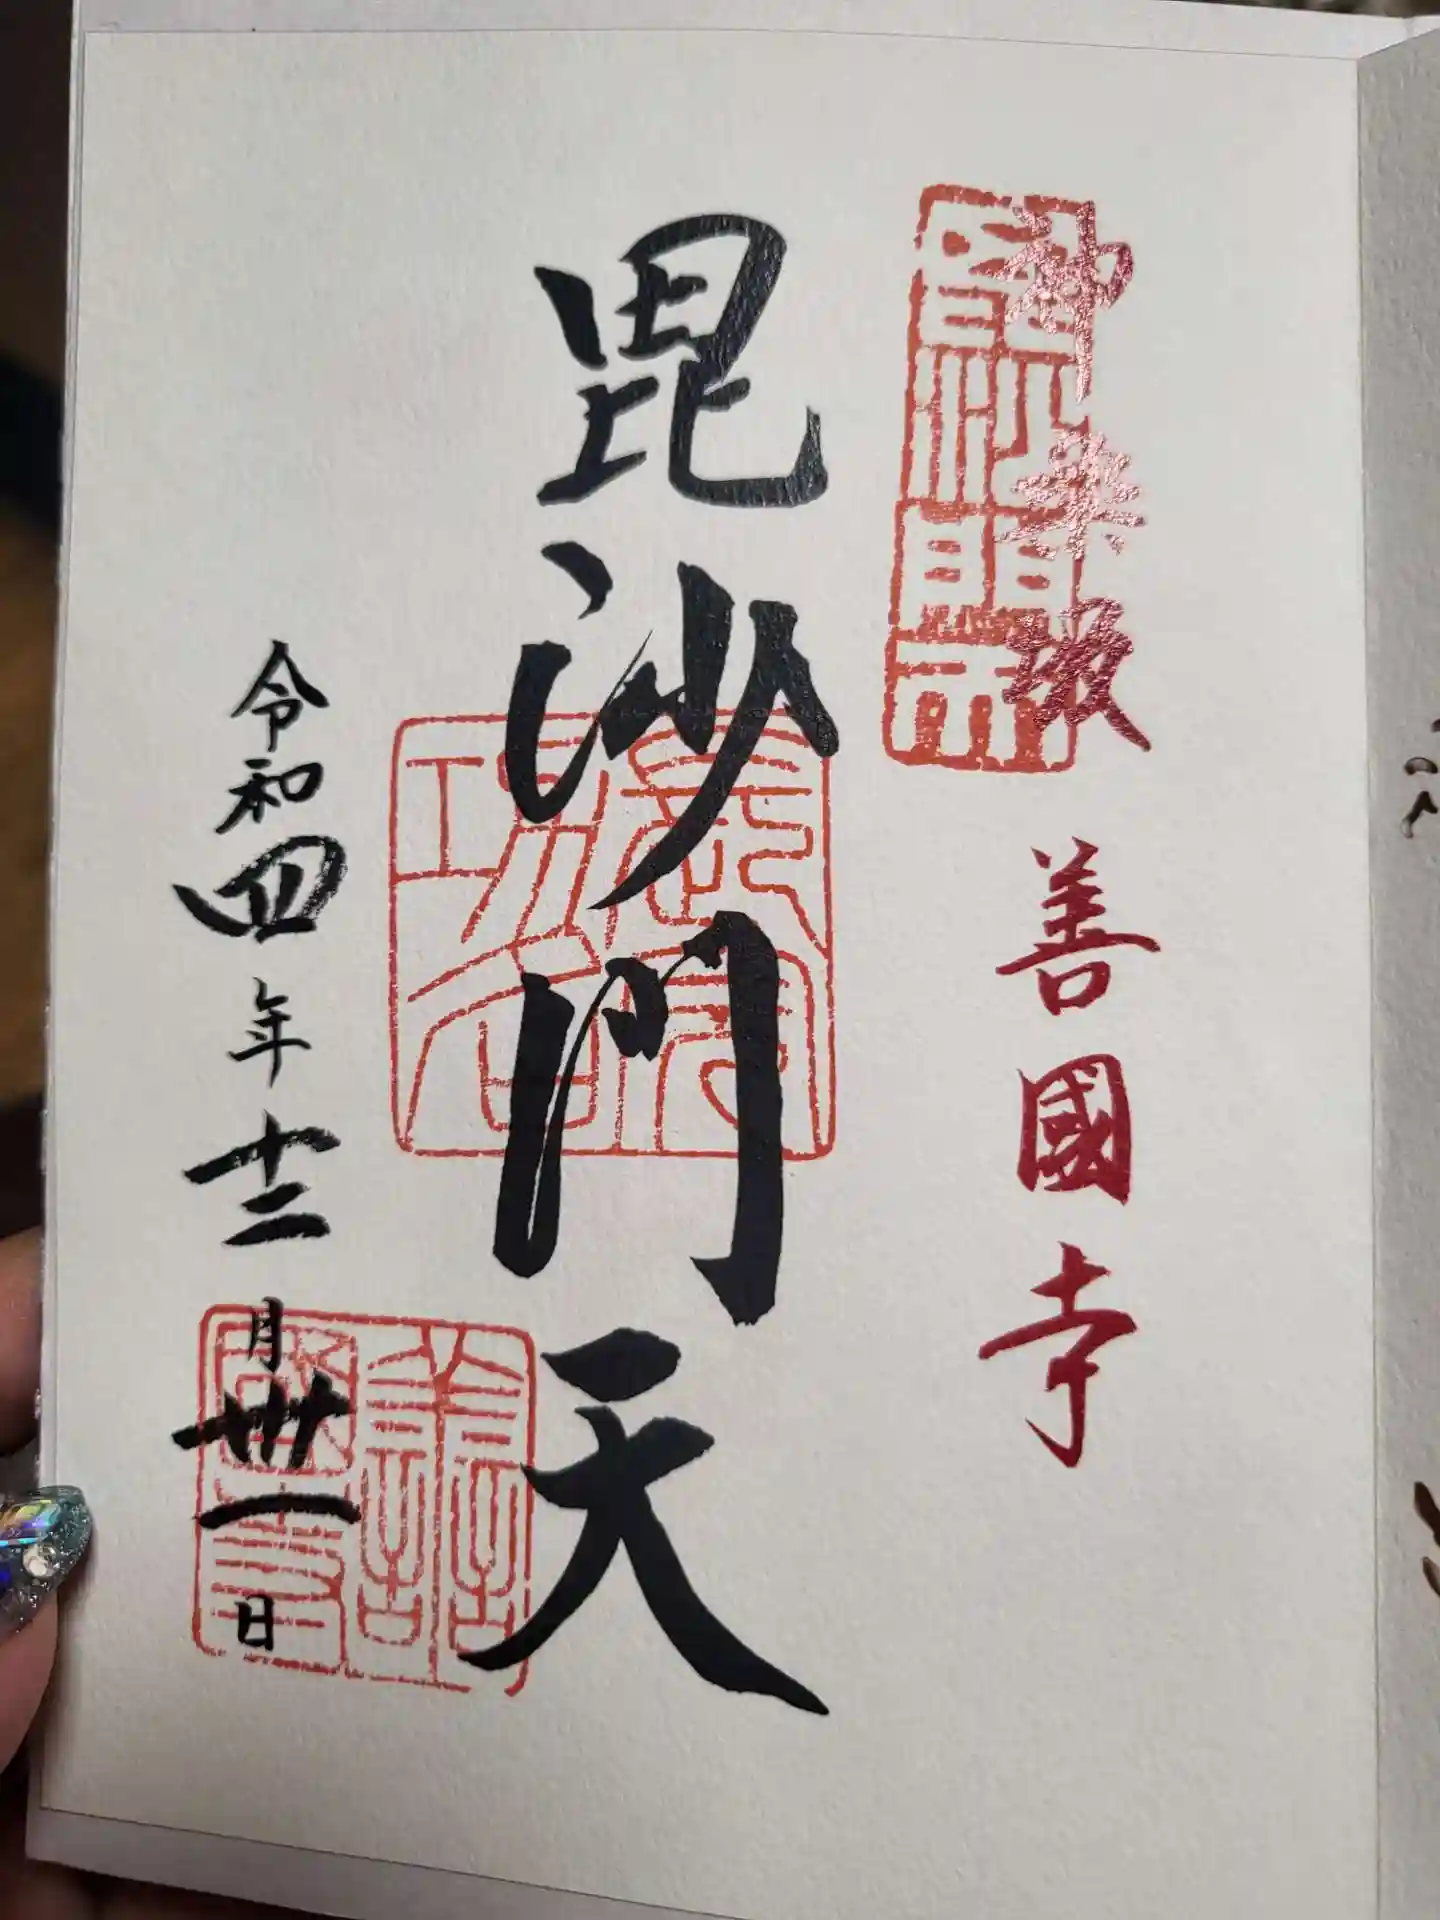 神楽坂
善國寺
毘沙門天
令和四年十二月卅一日